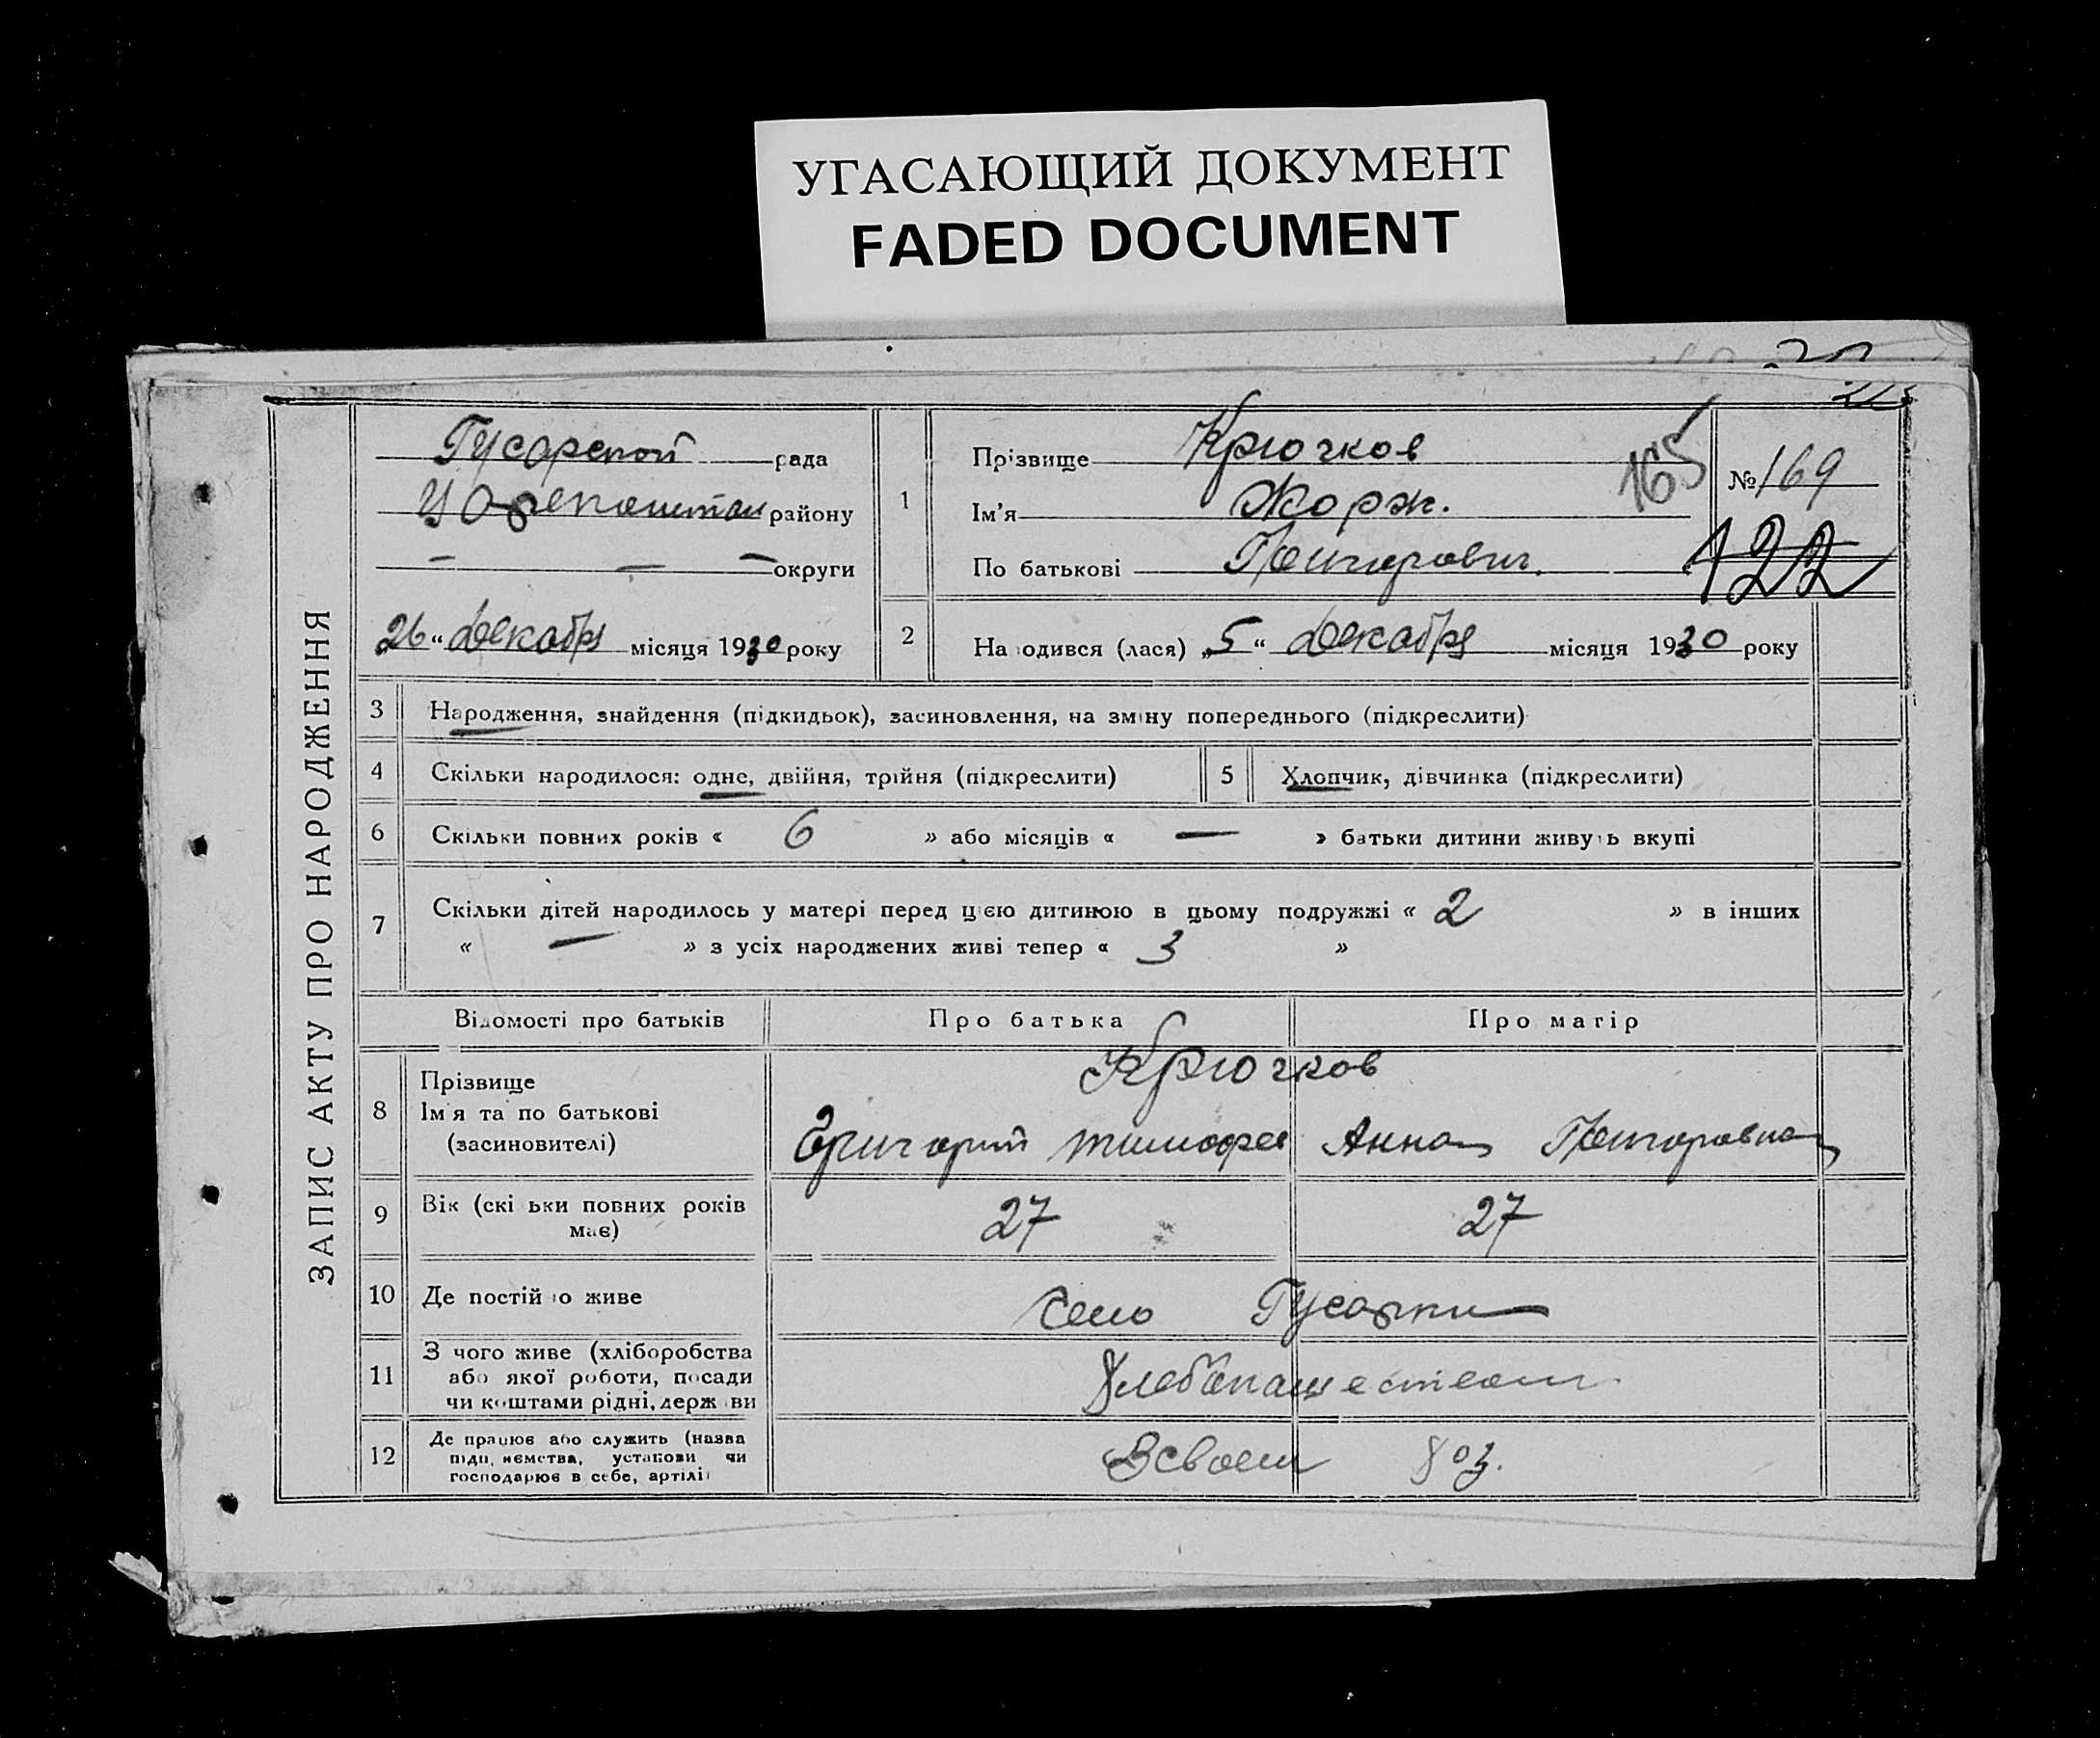 УГАСАЮЩИЙ ДОКУМЕНТ
FADED DOCUMENT
ЗАПИС АКТУ ПРО НАРОДЖЕННЯ
Гусарской рада
району
— — — округи
26 “ Декабр місяця 1930 року
1 Прізвище Крючков
Ім'я Жорж.
По батькові
165
№ 169
122
2 На одився (лася) „5“ Декабря місяця 1930 року
3 Народження, знайдення (підкидьок), засиновлення, на зміну попереднього (підкреслити)
4 Скільки народилося: одне, двійня, трійня (підкреслити)
5 Хлопчик, дівчинка (підкреслити)
6 Скільки повних років « 6 » або місяців « — » батьки дитини живуть вкупі
7 Скільки дітей народилось у матері перед цією дитиною в цьому подружжі « 2 » в інших
« — » з усіх народжених живі тепер « 3 »
Відомості про батьків Про батька Про матір
8 Прізвище Крючков
Ім'я та по батькові
(засиновителі) Григорий Тимофев Анна
9 Вік (скі ьки повних років
має) 27 27
10 Де постій о живе Село Гусарки
11 З чого живе (хліборобства
або якої роботи, посади
чи коштами рідні, держ ви
Хлебопашеством
12 Де працює або служить (назва
підп, ємства, установи чи
господарює в себе, артілі)
В своем хоз.